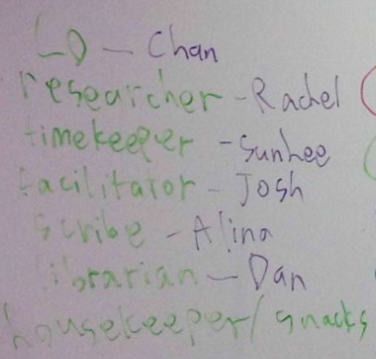 LD - Chan
researcher - Rachel
timekeeper - Sunhee
facilitator - Josh
scribe - Alina
librarian - Dan
housekeeper/snacks